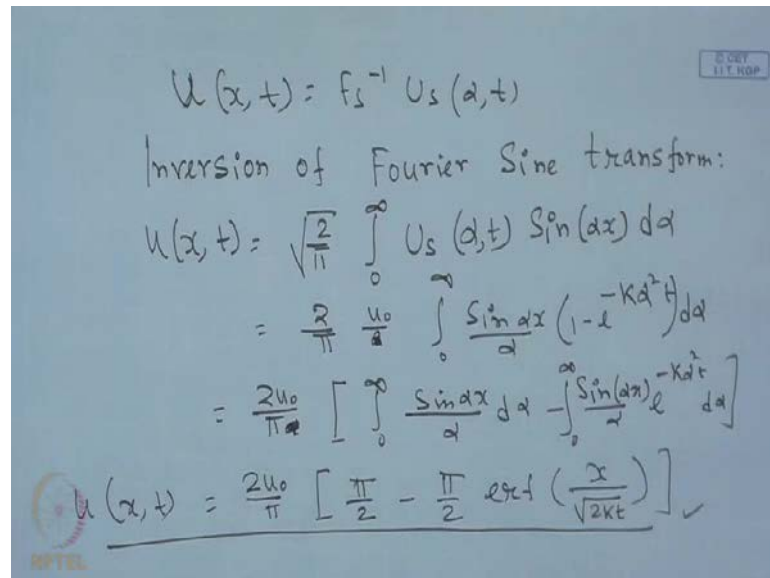 © CET
I.I.T. KGP
U(x,t) = Fs⁻¹ Us(α,t)
Inversion of Fourier Sine transform:
u(x,t) = √(2/π) ∫₀^∞ Us(α,t) Sin(αx) dα
= 2/π u₀ ∫₀^∞ Sin αx/α (1 - e^(-Kα²t)) dα
= 2u₀/π [ ∫₀^∞ Sin αx/α dα - ∫₀^∞ Sin(αx)/α e^(-Kα²t) dα ]
u(x,t) = 2u₀/π [ π/2 - π/2 erf (x/√(2Kt)) ] ✓
NPTEL